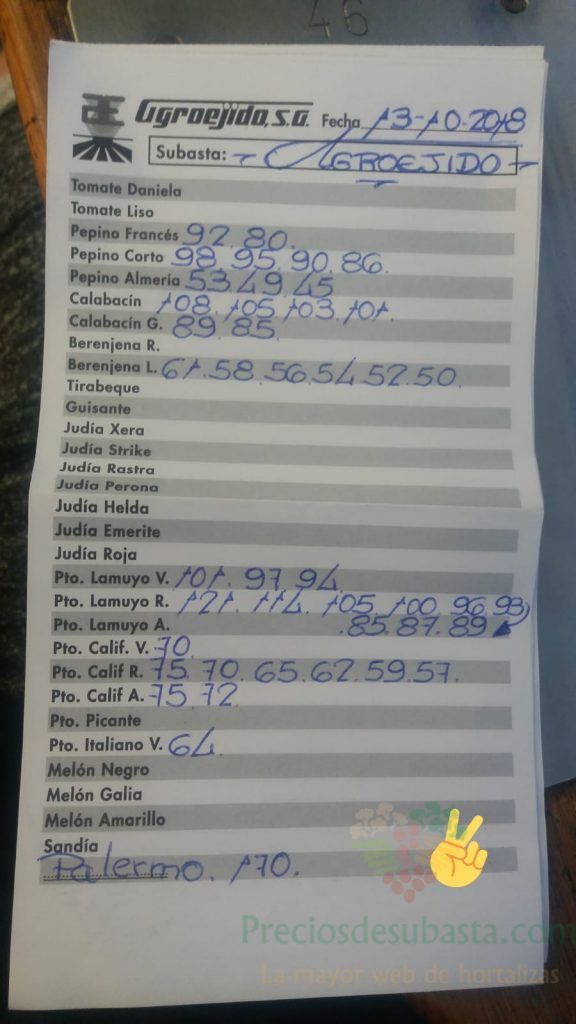 46
Æ Agroejido, S.A. Fecha 13-10-2018
Subasta: - AGROEJIDO -
Tomate Daniela
Tomate Liso
Pepino Francés 92. 80.
Pepino Corto 98. 95. 90. 86.
Pepino Almería 53. 49. 45
Calabacín 108. 105. 103. 101.
Calabacín G. 89. 85.
Berenjena R.
Berenjena L. 61. 58. 56. 54. 52. 50.
Tirabeque
Guisante
Judía Xera
Judía Strike
Judía Rastra
Judía Perona
Judía Helda
Judía Emerite
Judía Roja
Pto. Lamuyo V. 101. 97. 94.
Pto. Lamuyo R. 121. 114. 105. 100. 96. 93
Pto. Lamuyo A. .85. 87. 89
Pto. Calif. V. 70
Pto. Calif R. 75. 70. 65. 62. 59. 57.
Pto. Calif A. 75. 72.
Pto. Picante
Pto. Italiano V. 64.
Melón Negro
Melón Galia
Melón Amarillo
Sandía
Palermo. 170.
Preciosdesubasta.com
La mayor web de hortalizas